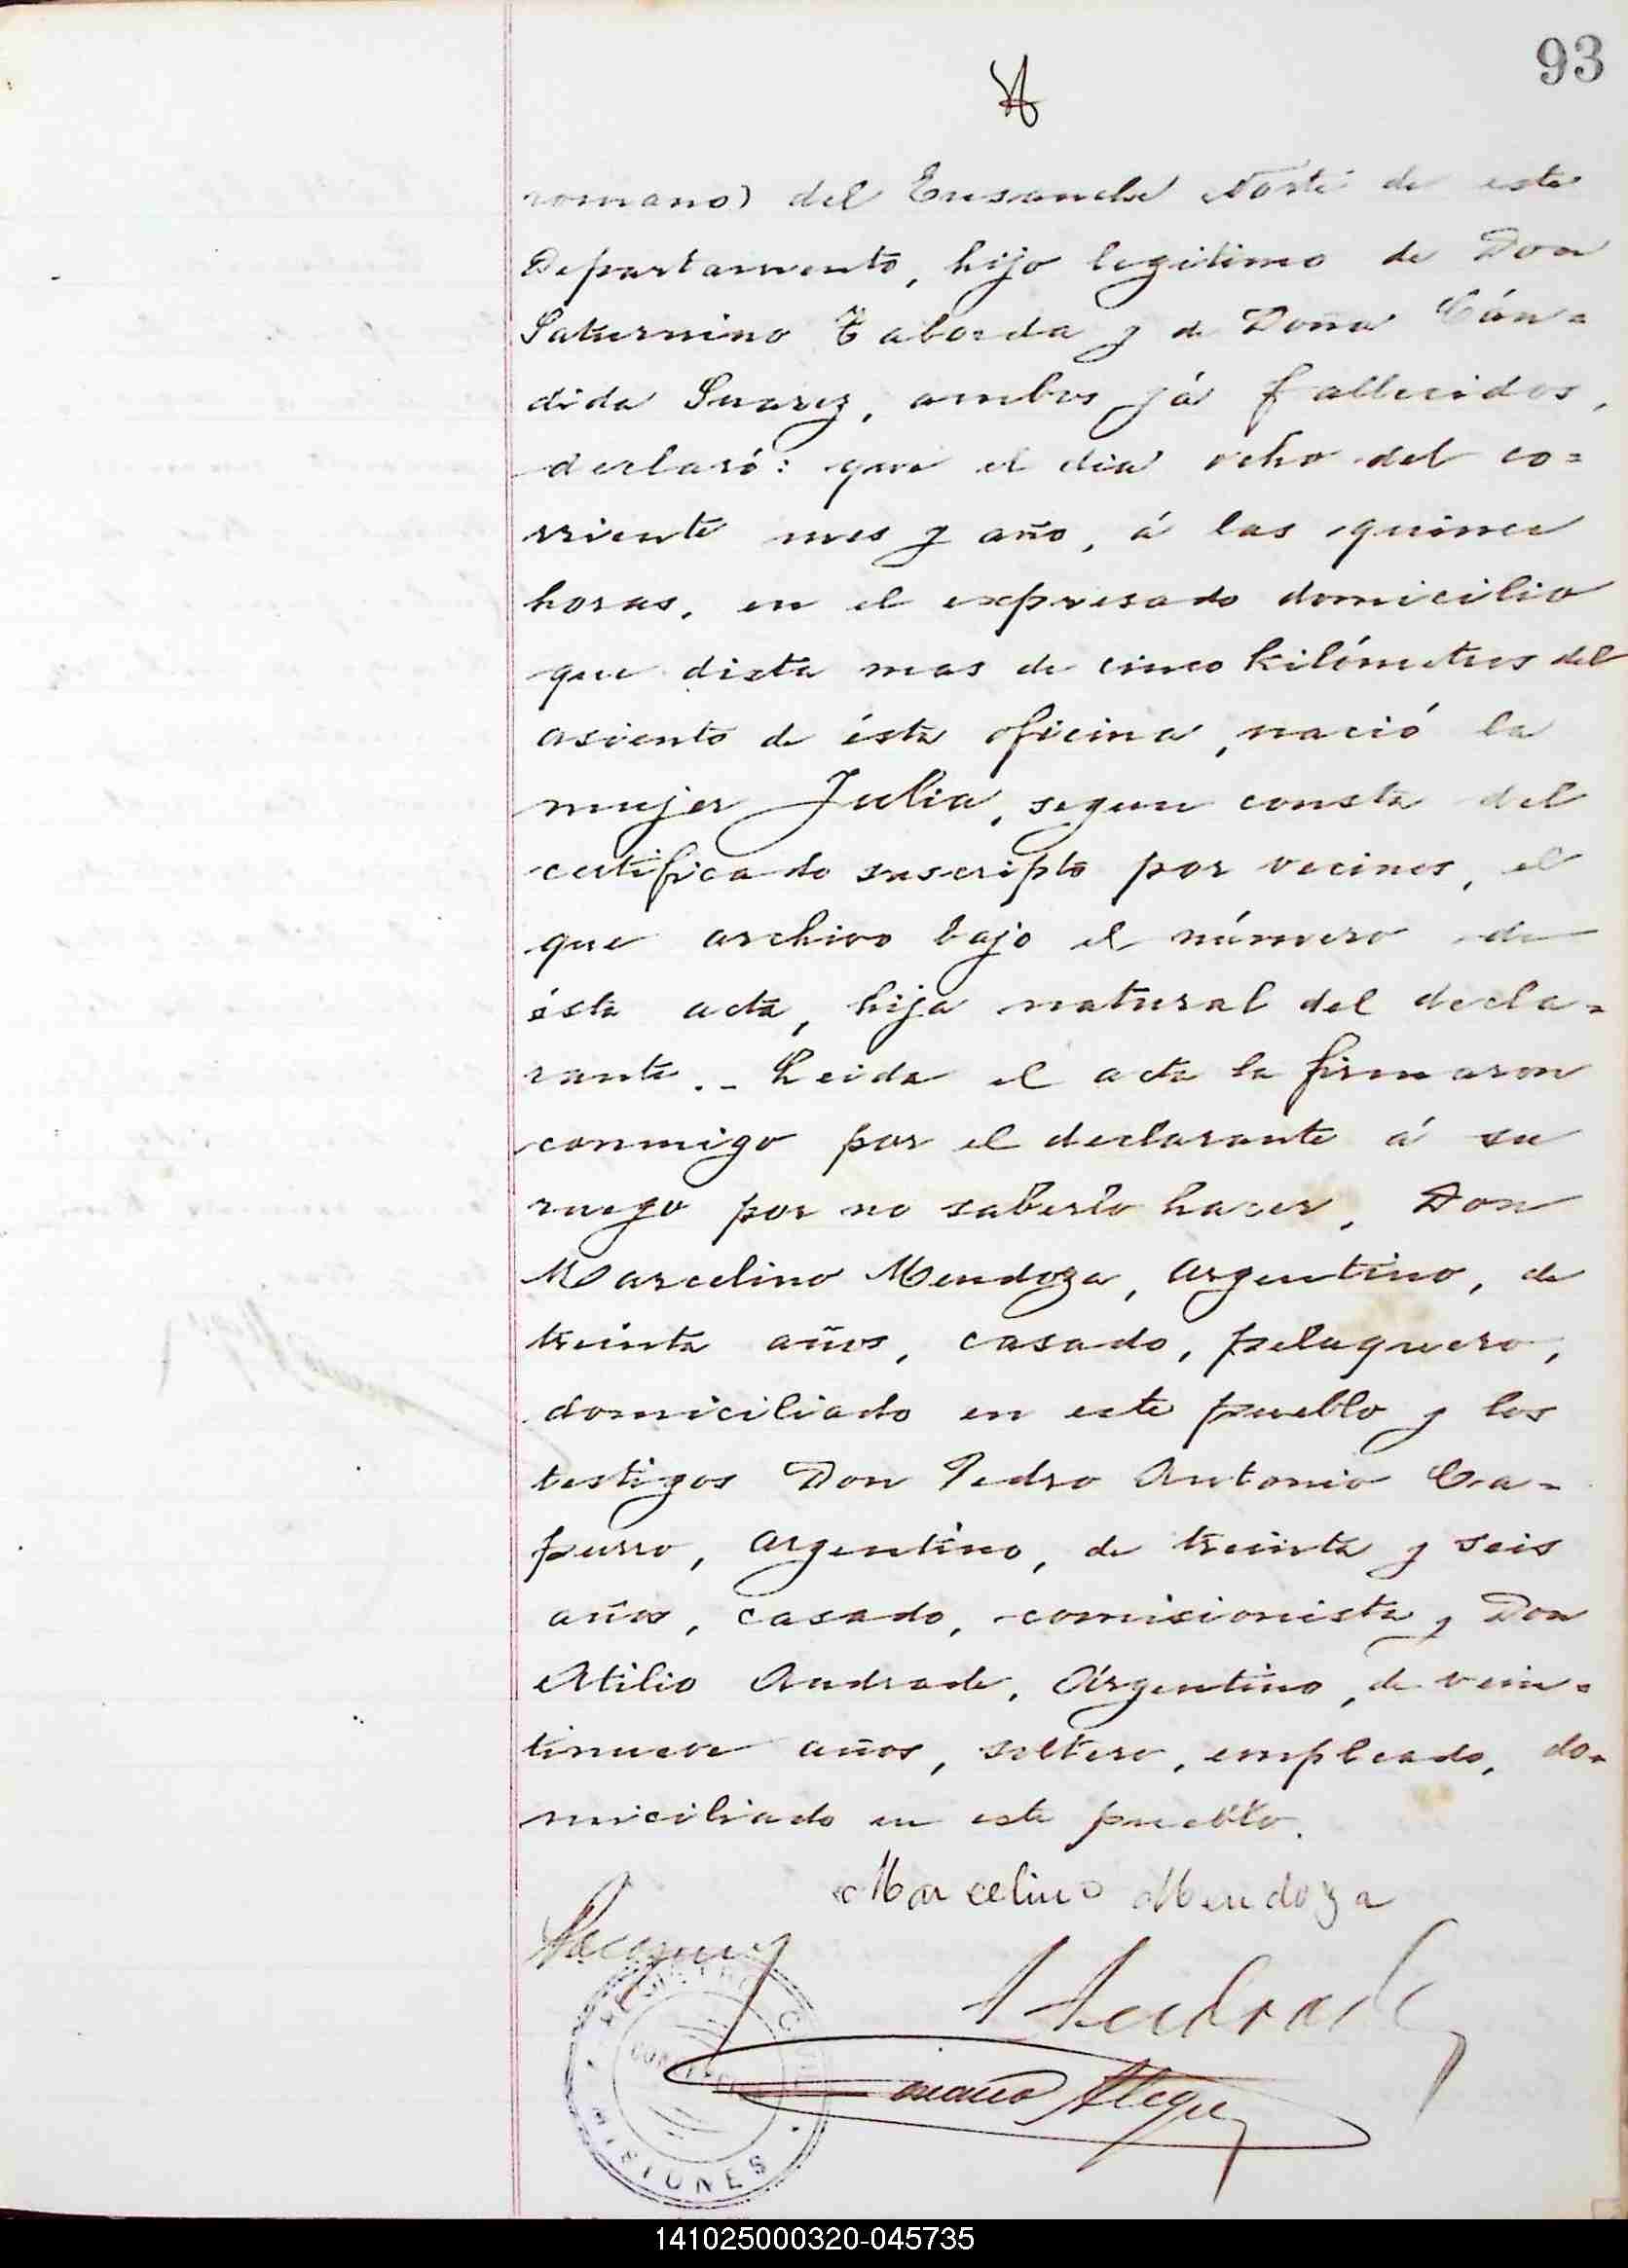 93
romano) del Ensanche Norte de este
Departamento, hijo legitimo de Don
Saturnino Taborda y de Doña Cán=
dida Suarez, ambos yá fallecidos,
declaró: que el dia ocho del co=
rriente mes y año, á las quince
horas, en el expresado domicilio
que dista mas de cinco kilómetros del
asiento de ésta oficina, nació la
mujer Julia, segun consta del
certificado suscripto por vecinos, el
que archivo bajo el número de
ésta acta, hija natural del decla=
rante.- Leida el acta la firmaron
conmigo por el declarante á su
ruego por no saberlo hacer, Don
Marcelino Mendoza, argentino, de
treinta años, casado, peluquero,
domiciliado en este pueblo y los
testigos Don Pedro Antonio Ca=
purro, argentino, de treinta y seis
años, casado, comisionista y Don
Atilio Andrade, Argentino, de vein=
tinueve años, soltero, empleado, do=
miciliado en este pueblo.
Marcelino Mendoza
Andrade
REGISTRO CIVIL
MISIONES
Alegre
141025000320-045735